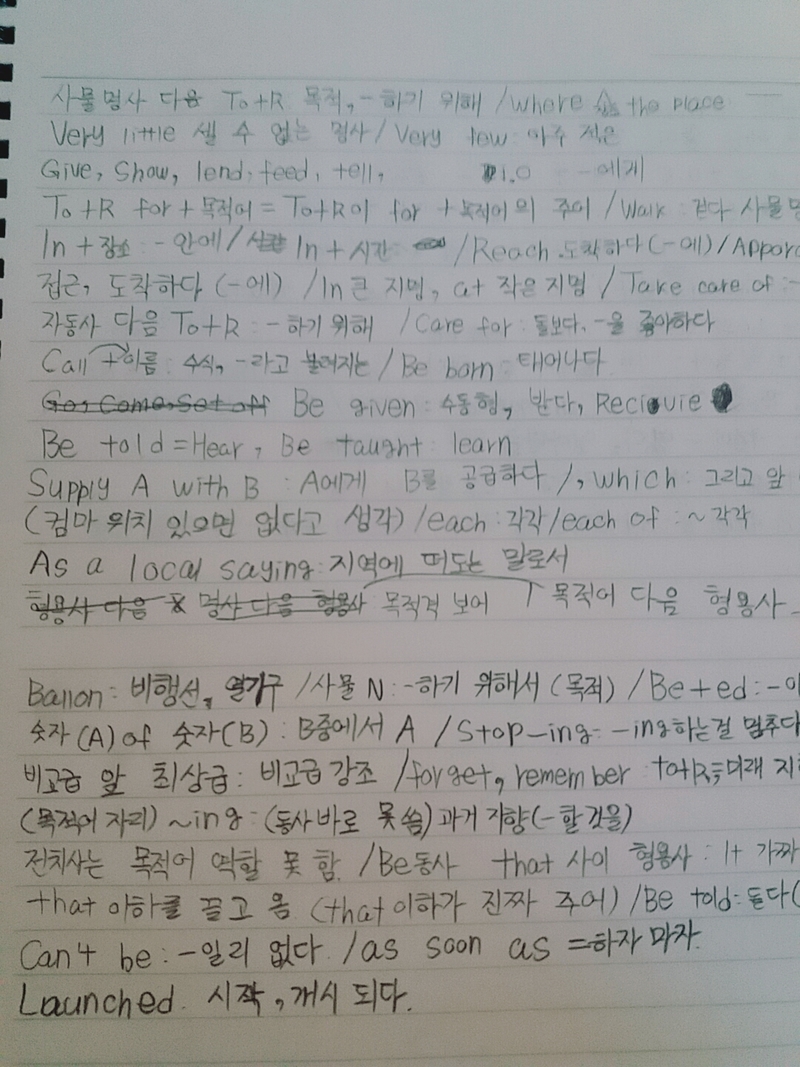 사물명사 다음 To+R 목적, -하기 위해 /where the place
Very little 셀 수 없는 명사/Very few 아주 적은
Give, Show, lend, feed, tell, I.O -에게
To+R for+목적어=To+R이 for+목적어의 주어 /Walk: 걷다 사물명
In+장소: -안에/ In+시간 /Reach 도착하다(-에)/Apporo
접근, 도착하다 (-에) /In 큰 지명, at 작은 지명 /Take care of:-
자동사 다음 To+R: -하기 위해 /Care for: 돌보다, -을 좋아하다
Call +이름: 수식, -라고 불려지는 /Be born 태어나다
Go, Come, Set off Be given: 수동형, 받다, Reciovie
Be told=Hear, Be taught: learn
Supply A with B: A에게 B를 공급하다 /, which: 그리고 앞
(컴마 위치 있으면 없다고 생각) /each:각각/each of:~각각
As a local saying: 지역에 떠도는 말로서
형용사 다음 명사 다음 형용사 목적격 보어 목적어 다음 형용사
Ballon: 비행선, 열기구 /사물 N:-하기 위해서 (목적) /Be+ed:-이
숫자(A) of 숫자(B): B중에서 A /Stop-ing: -ing하는걸 멈추다
비교급 앞 최상급: 비교급 강조 /forget, remember to+R:미래 지
(목적어 자리) ~ing: (동사 바로 못 씀) 과거 지향(-할 것을)
전치사는 목적어 역할 못 함. /Be동사 that 사이 형용사: It 가짜
that 이하를 끌고 옴 (that 이하가 진짜 주어) /Be told: 듣다(
Can't be: -일리 없다. /as soon as =하자 마자.
Launched. 시작, 개시 되다.